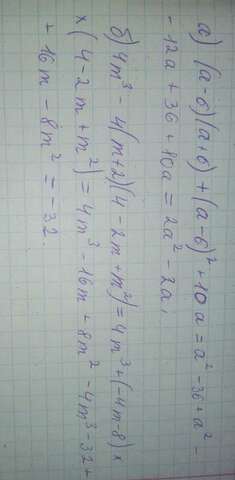 а) (a-6)(a+6)+(a-6)²+10a=a²-36+a²-
-12a+36+10a=2a²-2a;
б) 4m³-4(m+2)(4-2m+m²)=4m³+(-4m-8)×
×(4-2m+m²)=4m³-16m+8m²-4m³-32+
+16m-8m²=-32.